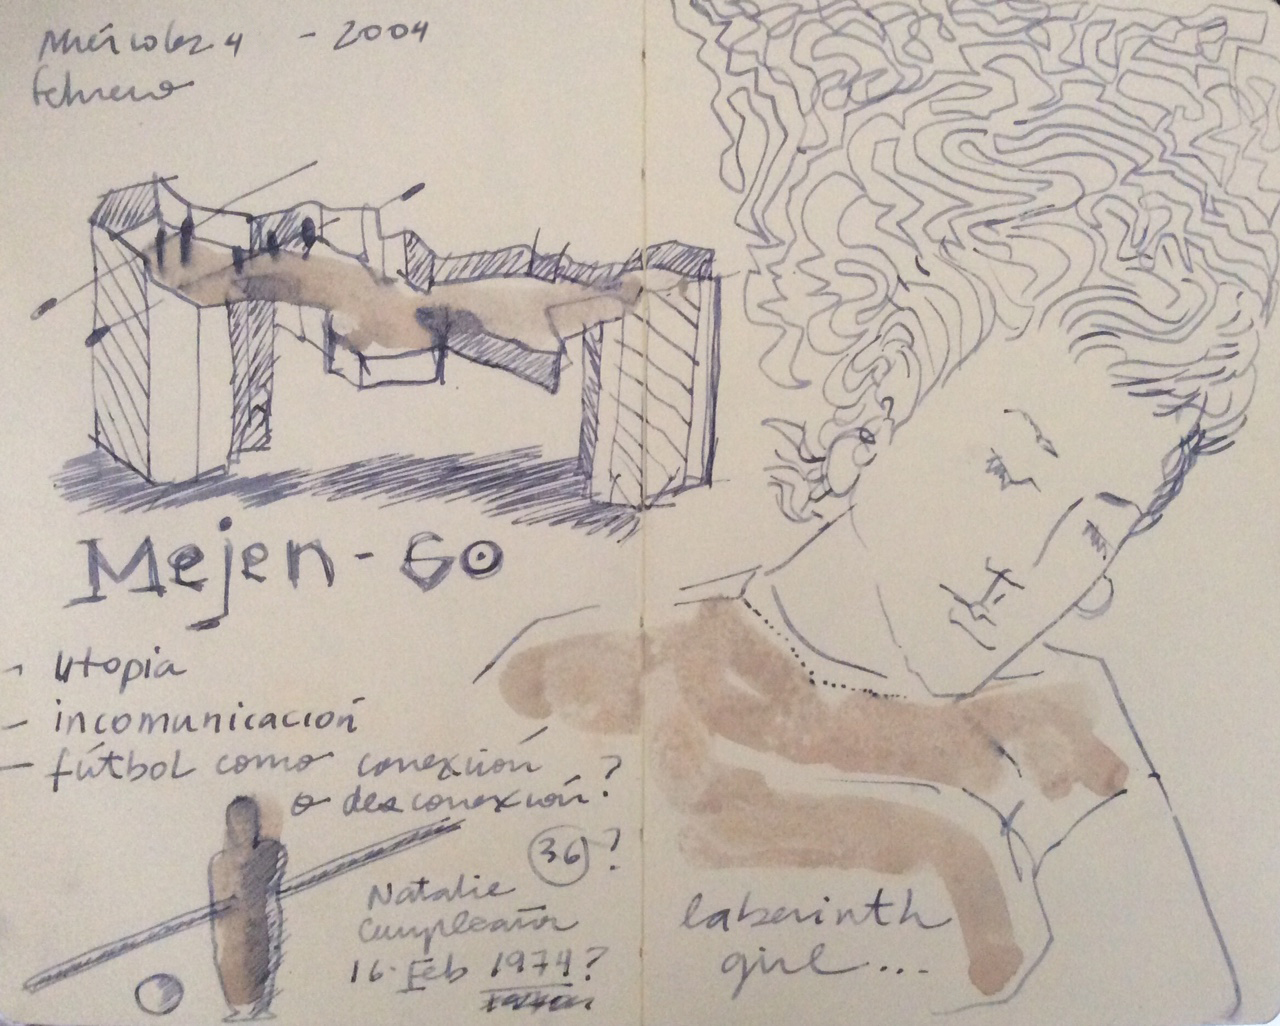 Miércoles 4 - 2004
febrero
Mejen-Go
- utopia
- incomunicación
- fútbol como conexión ?
o desconexión?
36 ?
Natalie
Cumpleaños
16. Feb 1974?
laberinth
girl...